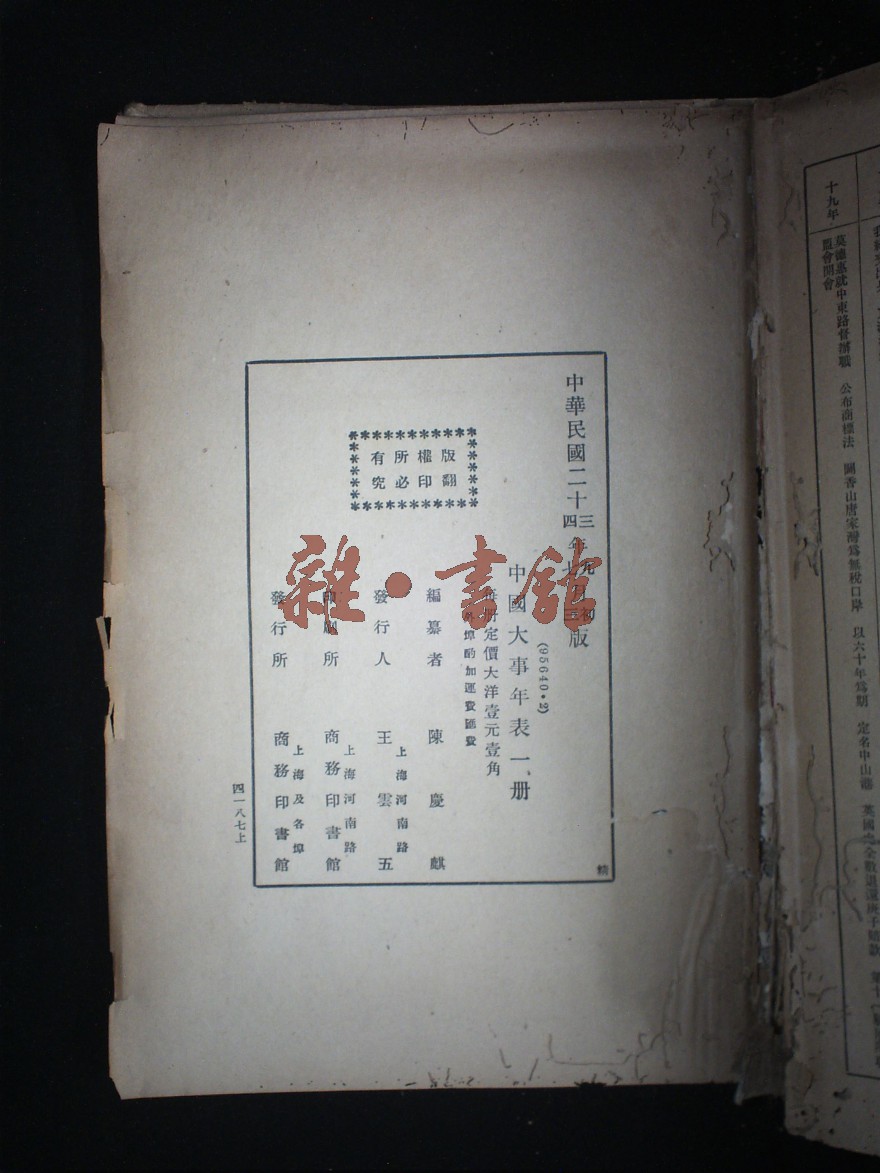 中華民國二十三年九月初版
四年七月三版
(95640·2)
中國大事年表一册
每册定價大洋壹元壹角
外埠酌加運費匯費
編纂者 陳慶麒
發行人 王雲五
上海河南路
印刷所 商務印書館
上海河南路
發行所 商務印書館
上海及各埠
版權所有
翻印必究
精
四一八七上
雜·書館
十九年
莫德惠就中東路督辦職 公布商標法 闢香山唐家灣爲無稅口岸 以六十年爲期 定名中山港 英國
盟會開會